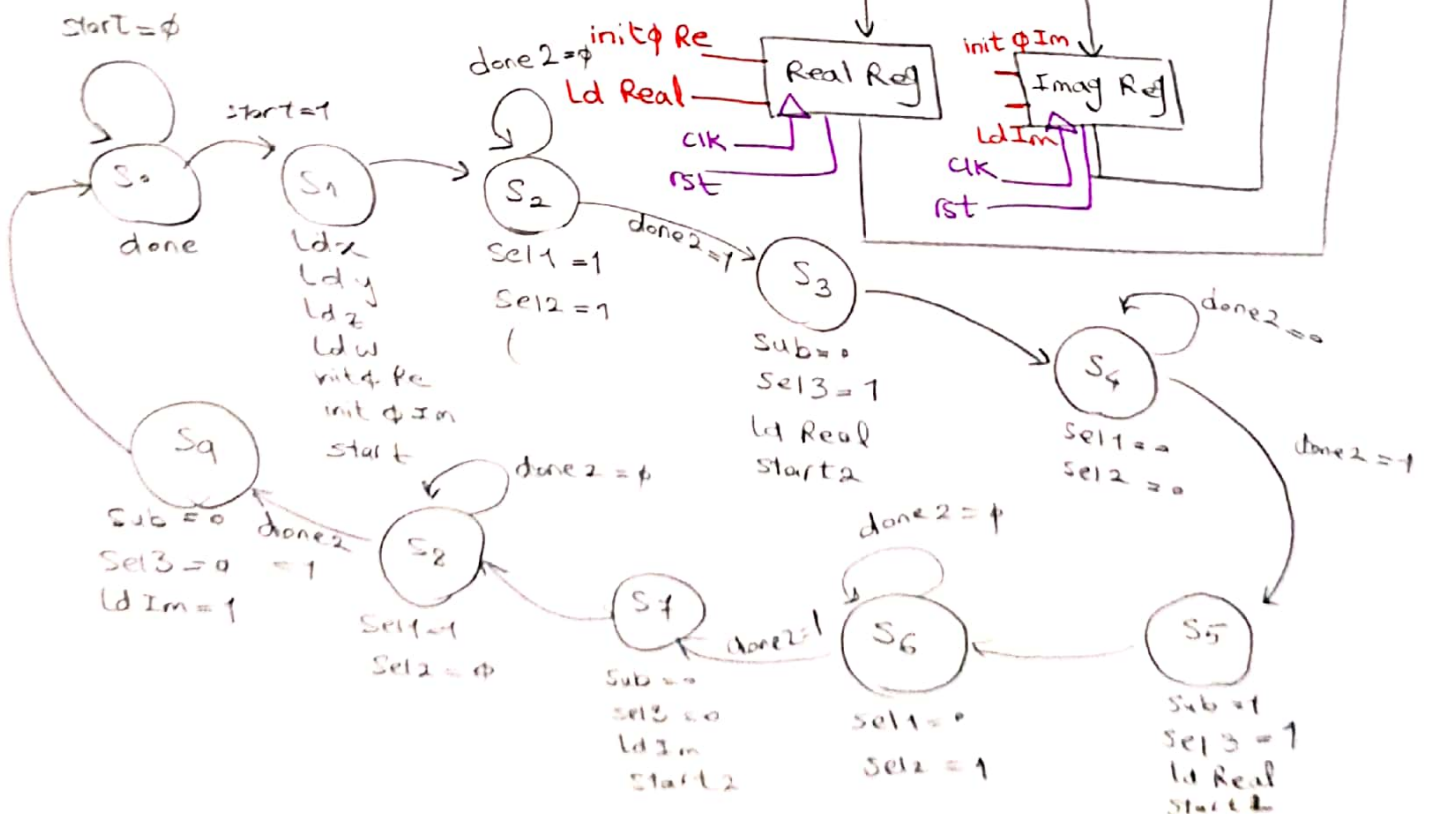 start = ϕ
start=1
S0
done
S1
Ld x
Ld y
Ld z
Ld w
init ϕ Re
init ϕ Im
start
done2=ϕ
S2
Sel1 =1
Sel2 = 1
(
done2 =1
initϕ Re
Ld Real
Real Reg
Clk
rst
init ϕ Im
Ld Im
Imag Reg
Clk
rst
S3
Sub= 0
Sel3 = 1
Ld Real
Start2
done2 = 0
S4
Sel1 = 0
Sel2 = 0
done2 = 1
S5
Sub = 1
Sel3 = 1
Ld Real
Start2
done2 = ϕ
S6
Sel1 = 0
Sel2 = 1
done2=1
S7
Sub = 0
Sel3 = 0
Ld Im
Start2
done2 = ϕ
S8
Sel1=1
Sel2 = ϕ
done2 = 1
S9
Sub = 0
Sel3 = 0
Ld Im = 1